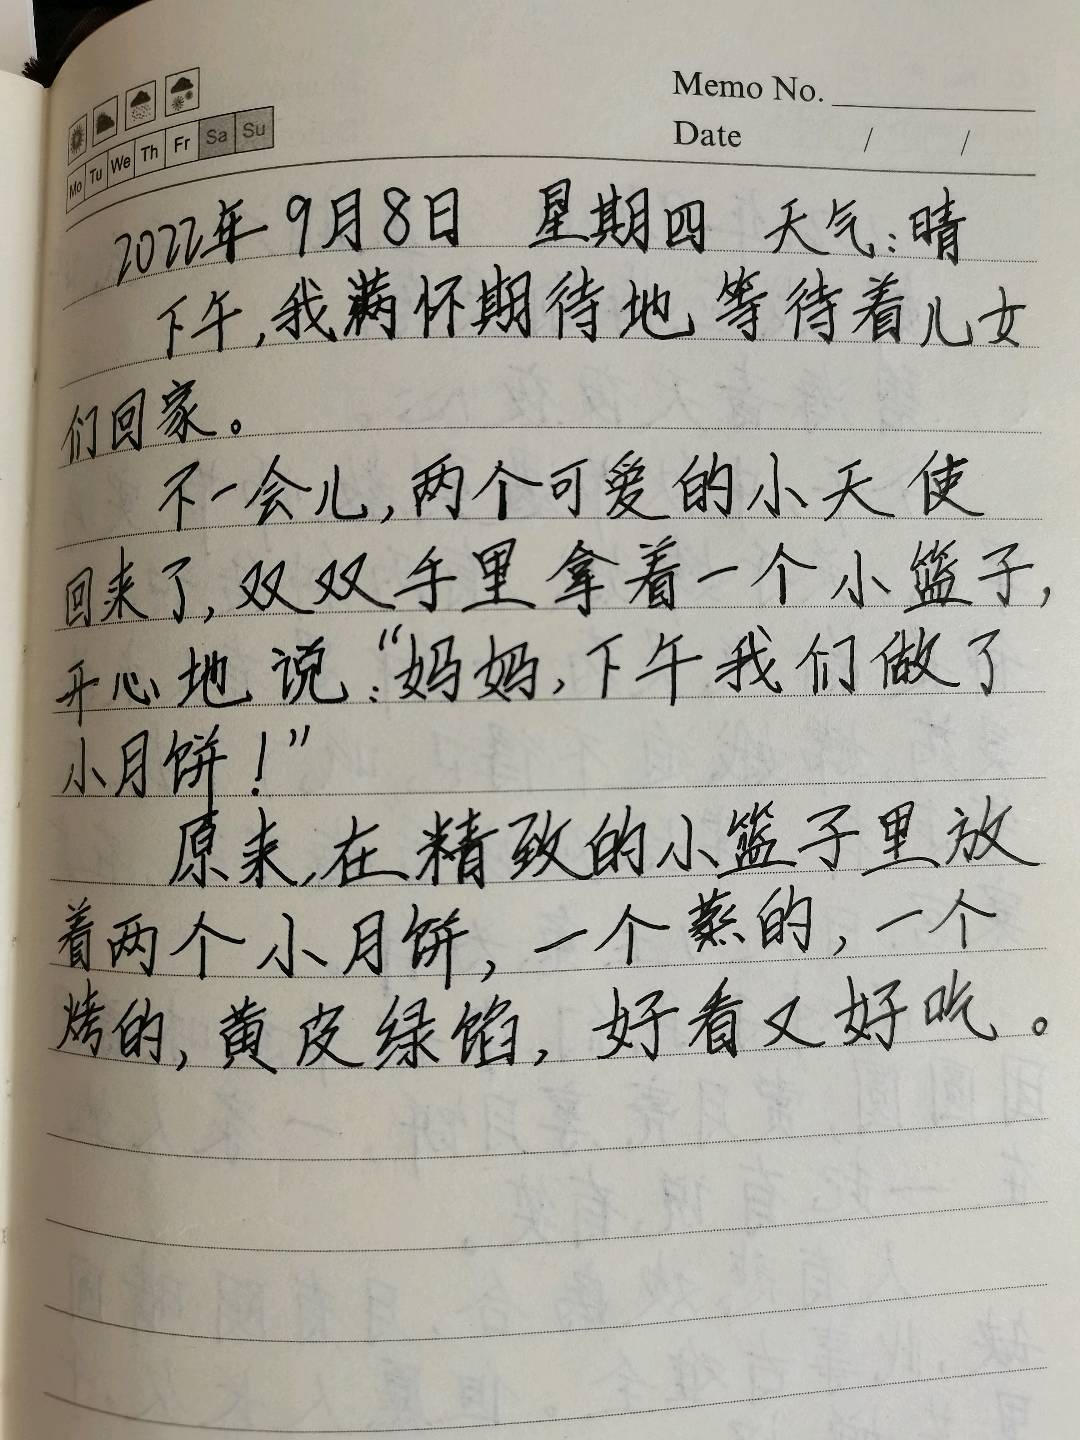 Memo No.
Date / /
Mo Tu We Th Fr Sa Su
2022年9月8日 星期四 天气:晴
下午,我满怀期待地等待着儿女
们回家。
不一会儿,两个可爱的小天使
回来了,双双手里拿着一个小篮子,
开心地说:“妈妈,下午我们做了
小月饼!”
原来,在精致的小篮子里放
着两个小月饼,一个蒸的,一个
烤的,黄皮绿馅,好看又好吃。